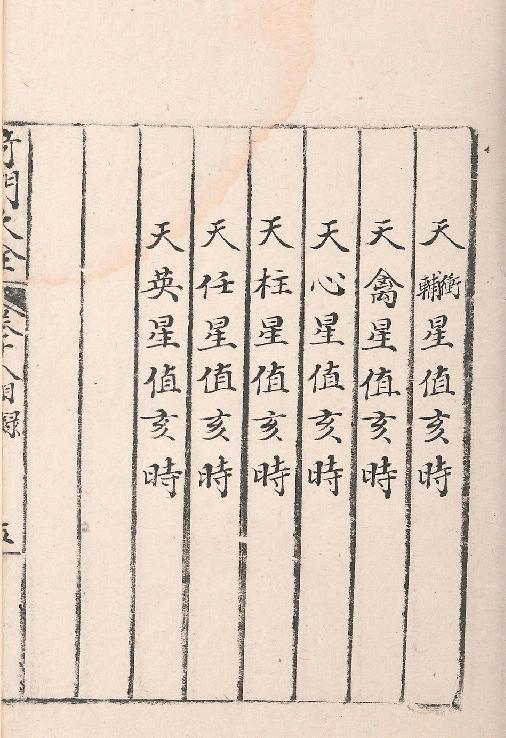 天衝輔星值亥時
天禽星值亥時
天心星值亥時
天柱星值亥時
天任星值亥時
天英星值亥時
奇門大全
卷十八目錄
五